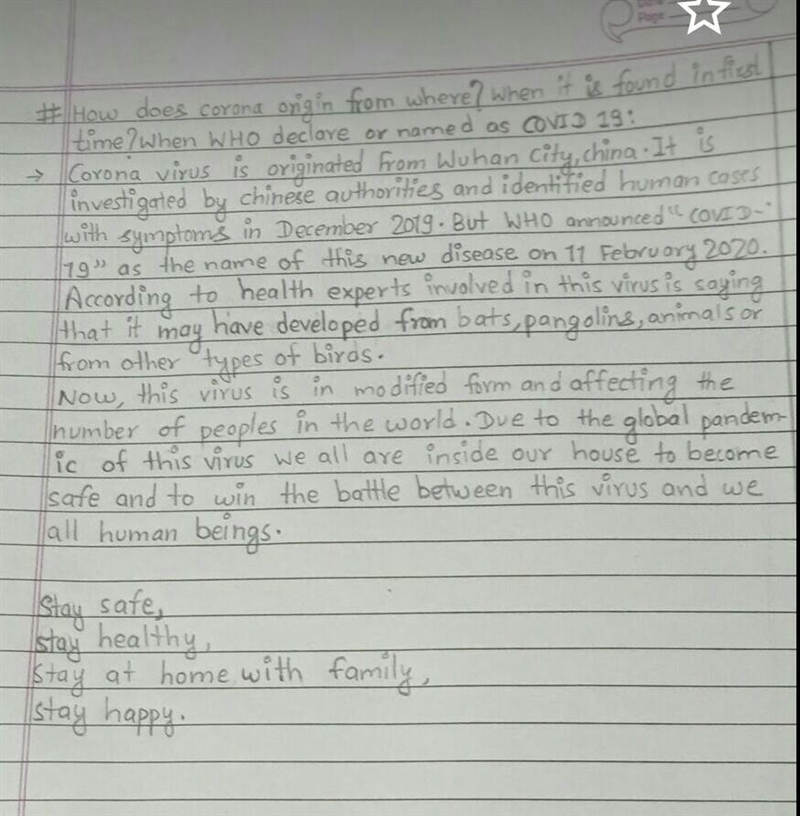 Page
# How does corona origin from where? When it is found in first
time? When WHO declare or named as COVID 19:
→ Corona virus is originated from Wuhan City, china. It is
investigated by chinese authorities and identified human cases
with symptoms in December 2019. But WHO announced "COVID-
19" as the name of this new disease on 11 February 2020.
According to health experts involved in this virus is saying
that it may have developed from bats, pangolins, animals or
from other types of birds.
Now, this virus is in modified form and affecting the
number of peoples in the world. Due to the global pandem-
ic of this virus we all are inside our house to become
safe and to win the battle between this virus and we
all human beings.
Stay safe,
stay healthy,
stay at home with family,
stay happy.